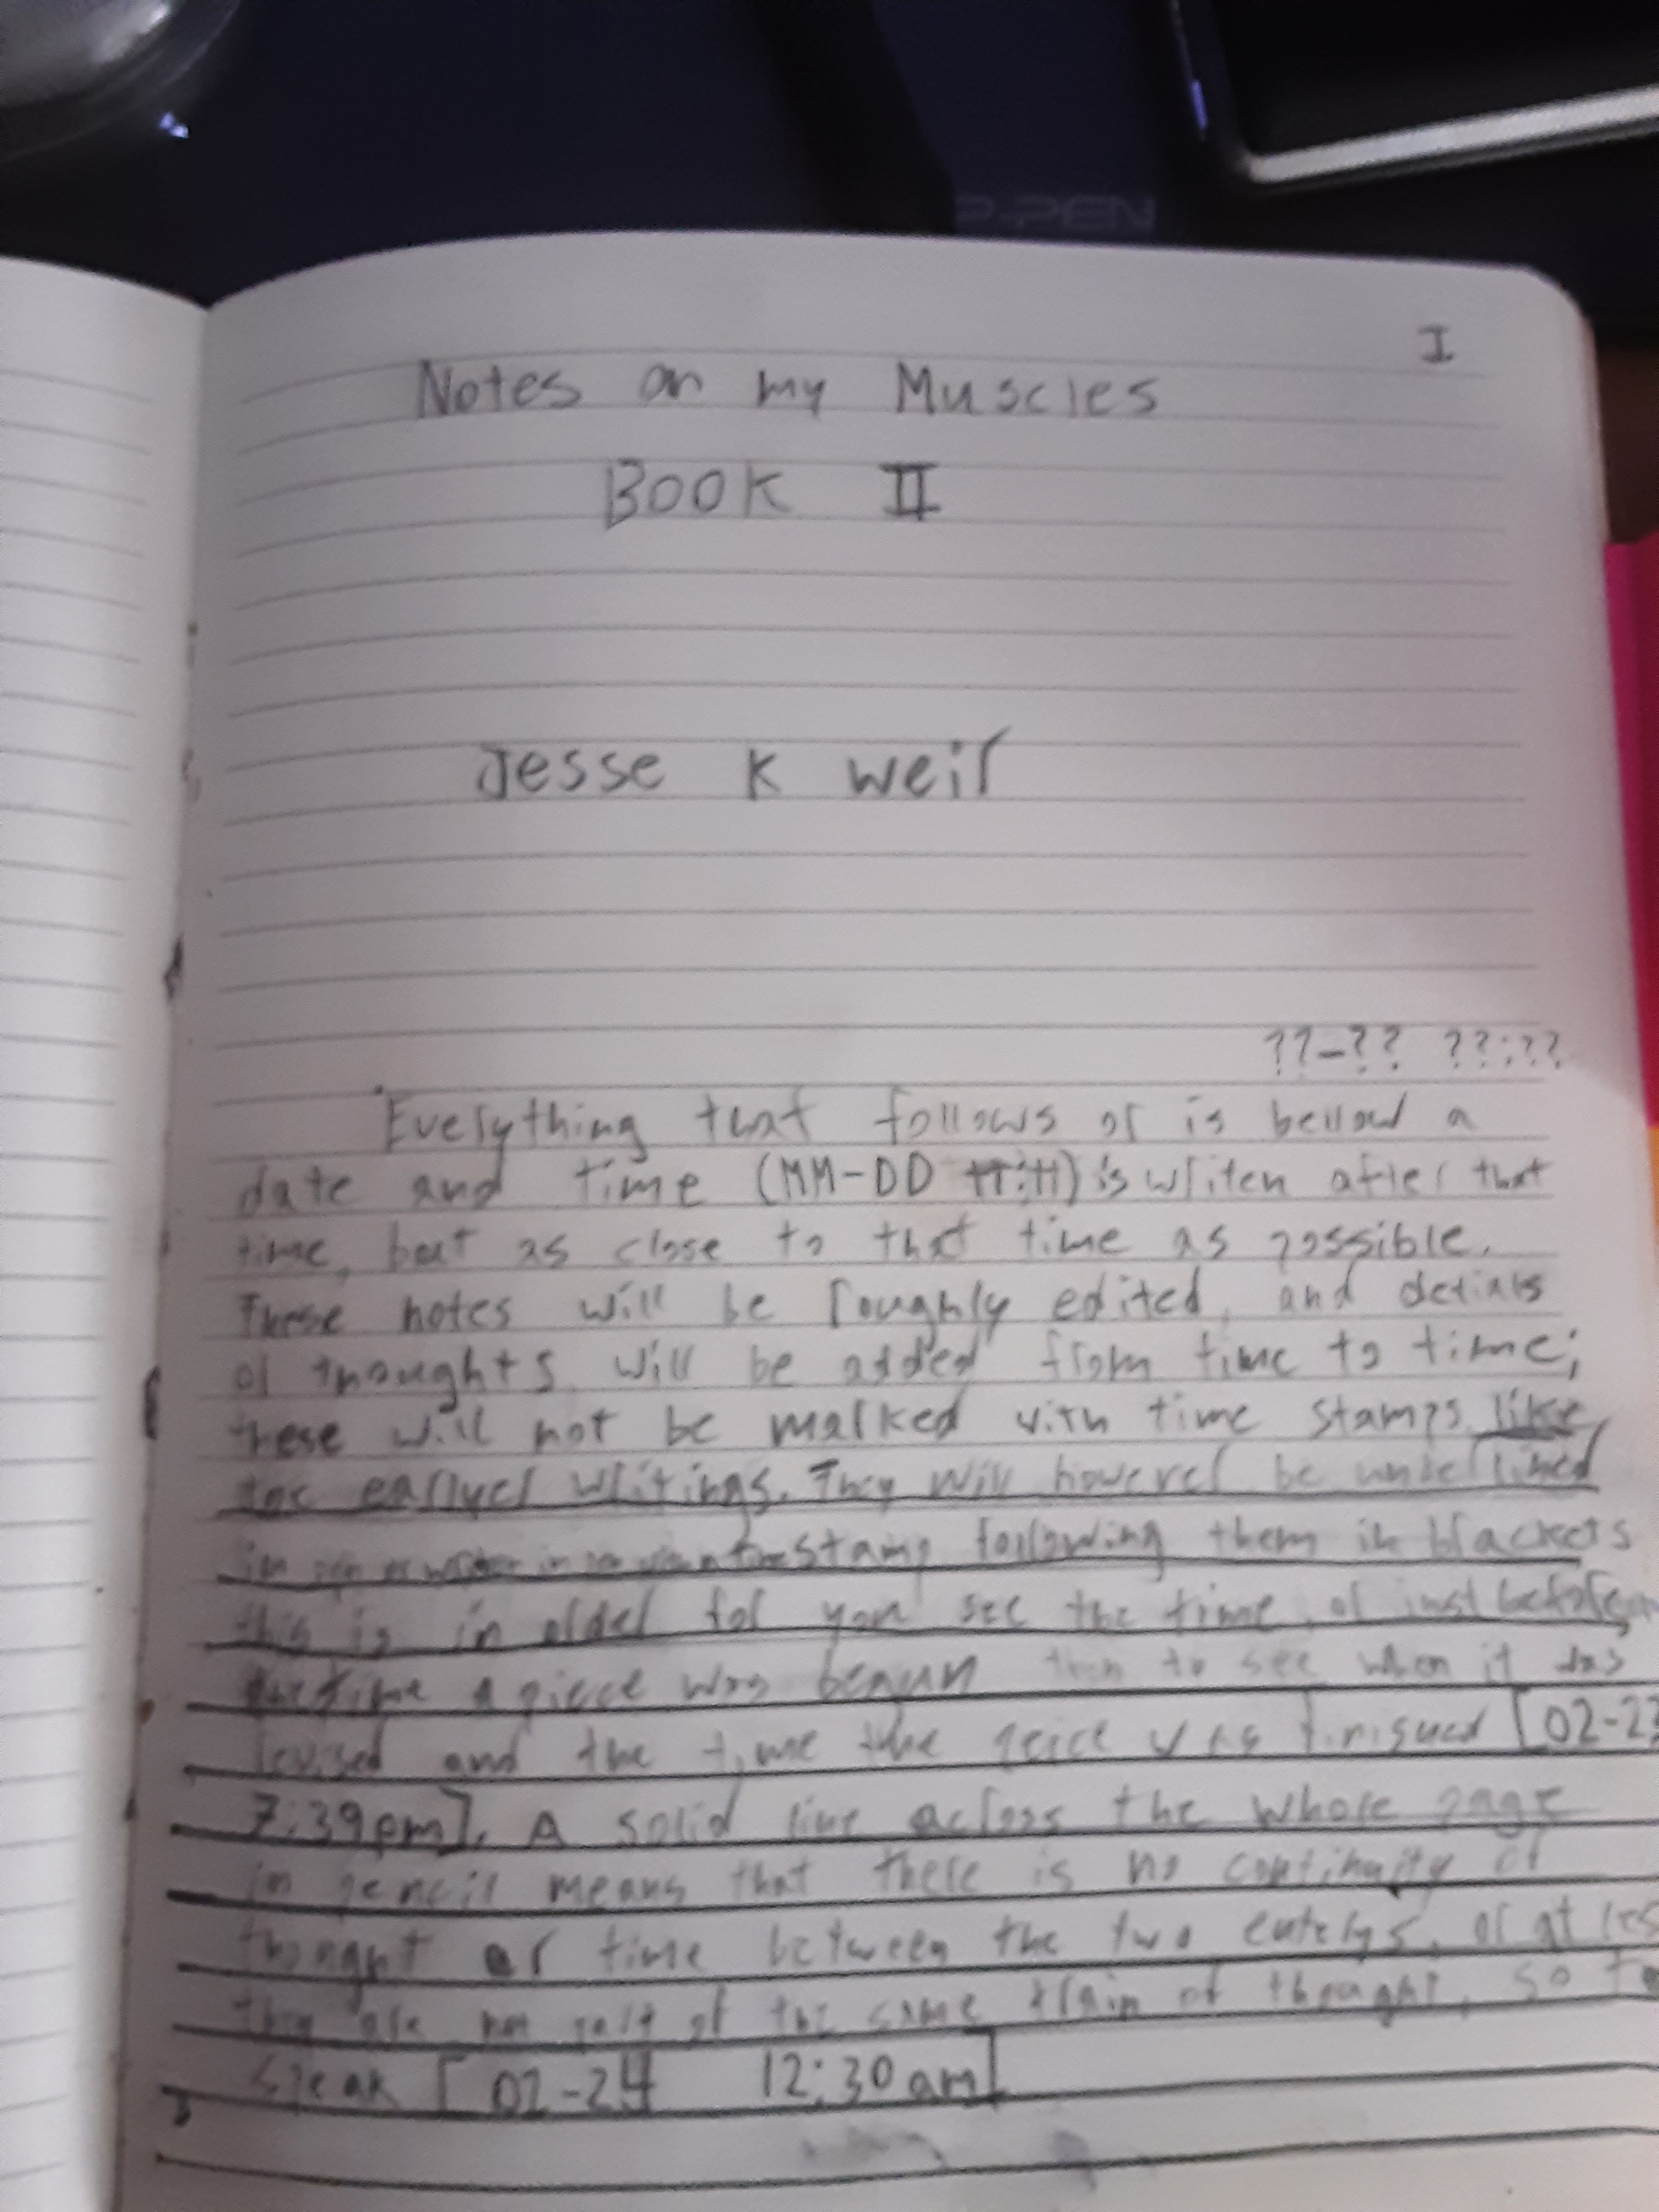 P-PEN
I
Notes on my Muscles
BOOK II
Jesse K Weir
??-?? ??:??
Everything that follows or is bellow a
date and time (MM-DD tt:tt) is writen after that
time, but as close to that time as possible.
These notes will be roughly edited, and detials
of thoughts will be added from time to time;
these will not be marked with time stamps like
the earlyer writings. They will however be underlined
stamp following them in brackets
this is in order for you see the time, or just before
the time a piece was begun then to see when it was
revised and the time the peice was finished [02-23
7:39pm]. A solid line across the whole page
in pencil means that there is no continuity of
thought or time between the two enterys, or at les
they are not part of the same train of thought, so to
speak [02-24 12:30am]